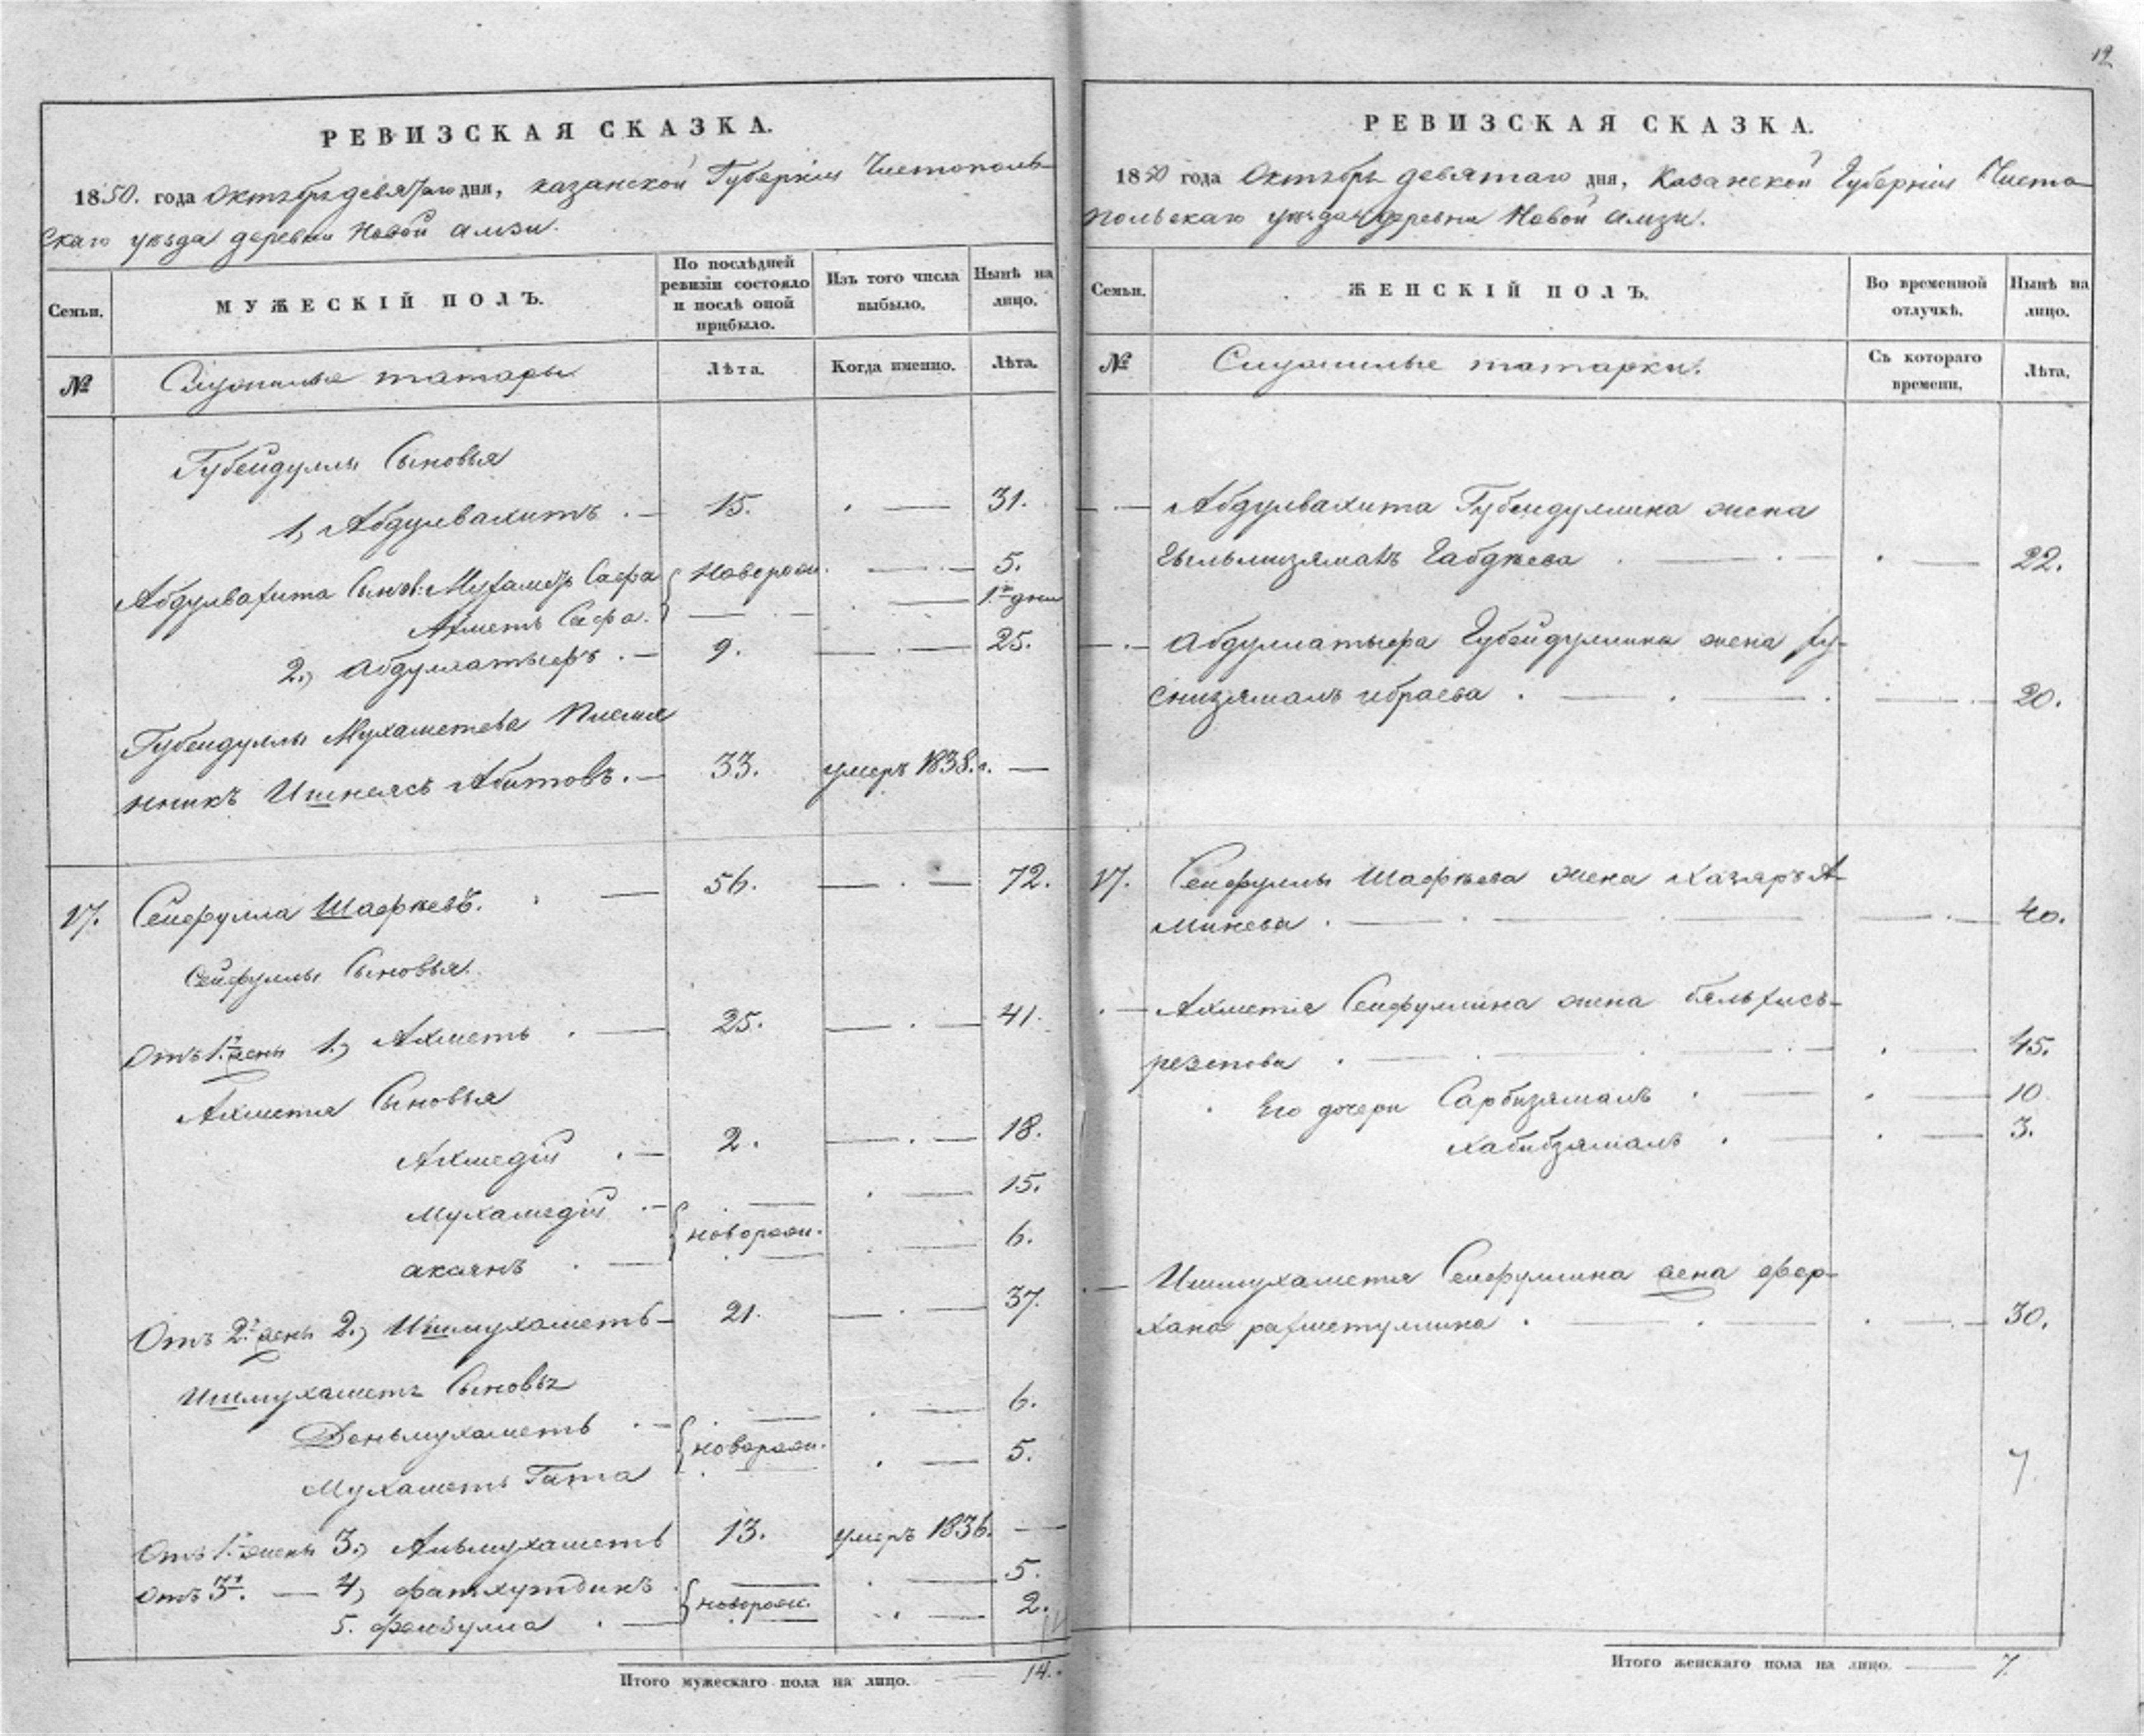 РЕВИЗСКАЯ СКАЗКА.
1850. года Октября девятаго дня, Казанской Губернiи Чистополь-
скаго уѣзда деревни Новой Амзи.
Семьи.
МУЖЕСКІЙ ПОЛЪ.
По послѣдней ревизіи состояло и послѣ оной прибыло.
Изъ того числа выбыло.
Нынѣ на лицо.
№
Служилые татары
Лѣта.
Когда именно.
Лѣта.
Губейдуллы Сыновья
1, Абдулвахитъ . — 15. . — 31.
Абдулвахита Сынов: Мухаметъ Сафа Новорож. — 5.
Ахметъ Сафа. — 1. дни
2., Абдуллатыфъ . — 9. — . — 25.
Губейдуллы Мухаметева Племя
нникъ Ишнеясъ Абитовъ. — 33. умеръ 1838. г. —
17. Сейфулла Шафкеевъ. . — 56. — . — 72.
Сейфуллы Сыновья.
Отъ 1. жены 1., Ахметъ . — 25. — . — 41.
Ахметя Сыновья
Ахмедiй . — 2. — . — 18.
Мухамедiй . — . — 15.
новорож.
акаянъ . — . — 6.
Отъ 2. жены 2., Ишмухаметъ — 21. — . — 37.
Ишмухаметя Сыновья
Деньмухаметъ . — . — 6.
новорож.
Мухаметъ Гата . — 5.
Отъ 1. жены 3., Альмухаметъ 13. умеръ 1836. —
Отъ 3. — 4, Фатхутдинъ . — 5.
новорож.
5. Фейзулла . — . — 2.
Итого мужескаго пола на лицо. — 14.
12
РЕВИЗСКАЯ СКАЗКА.
1850 года Октября девятаго дня, Казанской Губернiи Чисто-
польскаго уѣзда деревни Новой Амзи.
Семьи.
ЖЕНСКІЙ ПОЛЪ.
Во временной отлучкѣ.
Нынѣ на лицо.
№
Служилые татарки.
Съ котораго времени.
Лѣта.
— . — Абдулвахита Губейдуллина жена
Габдкеева . — . — . — 22.
— . — Абдуллатыфа Губейдуллина жена Ху-
снизямалъ Ибраева . — . — . — . — 20.
17. Сейфуллы Шафкеева жена Хагяръ А-
минева . — . — . — . — 40.
. — Ахметя Сейфуллина жена бяльхись-
резепова . — . — . — . — 45.
. Его дочери Сарбизямалъ . — . — 10
Хабибзямалъ . — . — 3.
. — Ишмухаметя Сейфуллина жена Фер-
хана рахметуллина . — . — . — . — 30.
7
Итого женскаго пола на лицо. — 7.